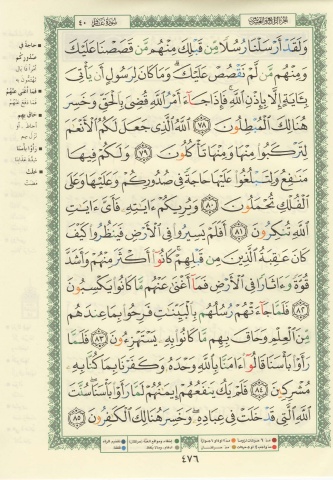 سورة غافر ٤٠
الجزء الرابع والعشرون
وَلَقَدْ أَرْسَلْنَا رُسُلًا مِّن قَبْلِكَ مِنْهُم مَّن قَصَصْنَا عَلَيْكَ
وَمِنْهُم مَّن لَّمْ نَقْصُصْ عَلَيْكَ ۗ وَمَا كَانَ لِرَسُولٍ أَن يَأْتِيَ
بِـَٔايَةٍ إِلَّا بِإِذْنِ ٱللَّهِ ۚ فَإِذَا جَآءَ أَمْرُ ٱللَّهِ قُضِيَ بِٱلْحَقِّ وَخَسِرَ
هُنَالِكَ ٱلْمُبْطِلُونَ ٧٨ ٱللَّهُ ٱلَّذِي جَعَلَ لَكُمُ ٱلْأَنْعَٰمَ
لِتَرْكَبُوا۟ مِنْهَا وَمِنْهَا تَأْكُلُونَ ٧٩ وَلَكُمْ فِيهَا
مَنَٰفِعُ وَلِتَبْلُغُوا۟ عَلَيْهَا حَاجَةً فِي صُدُورِكُمْ وَعَلَيْهَا وَعَلَى
ٱلْفُلْكِ تُحْمَلُونَ ٨٠ وَيُرِيكُمْ ءَايَٰتِهِۦ فَأَيَّ ءَايَٰتِ
ٱللَّهِ تُنكِرُونَ ٨١ أَفَلَمْ يَسِيرُوا۟ فِي ٱلْأَرْضِ فَيَنظُرُوا۟ كَيْفَ
كَانَ عَٰقِبَةُ ٱلَّذِينَ مِن قَبْلِهِمْ ۚ كَانُوٓا۟ أَكْثَرَ مِنْهُمْ وَأَشَدَّ
قُوَّةً وَءَاثَارًا فِي ٱلْأَرْضِ فَمَآ أَغْنَىٰ عَنْهُم مَّا كَانُوا۟ يَكْسِبُونَ
٨٢ فَلَمَّا جَآءَتْهُمْ رُسُلُهُم بِٱلْبَيِّنَٰتِ فَرِحُوا۟ بِمَا عِندَهُم
مِّنَ ٱلْعِلْمِ وَحَاقَ بِهِم مَّا كَانُوا۟ بِهِۦ يَسْتَهْزِءُونَ ٨٣ فَلَمَّا
رَأَوْا۟ بَأْسَنَا قَالُوٓا۟ ءَامَنَّا بِٱللَّهِ وَحْدَهُۥ وَكَفَرْنَا بِمَا كُنَّا بِهِۦ
مُشْرِكِينَ ٨٤ فَلَمْ يَكُ يَنفَعُهُمْ إِيمَٰنُهُمْ لَمَّا رَأَوْا۟ بَأْسَنَا ۖ سُنَّتَ
ٱللَّهِ ٱلَّتِي قَدْ خَلَتْ فِي عِبَادِهِۦ ۖ وَخَسِرَ هُنَالِكَ ٱلْكَٰفِرُونَ ٨٥
٤٧٦
حاجة في
صدوركم
فما أغنى عنهم
حاق بهم
رأوا بأسنا
خلت
مضت